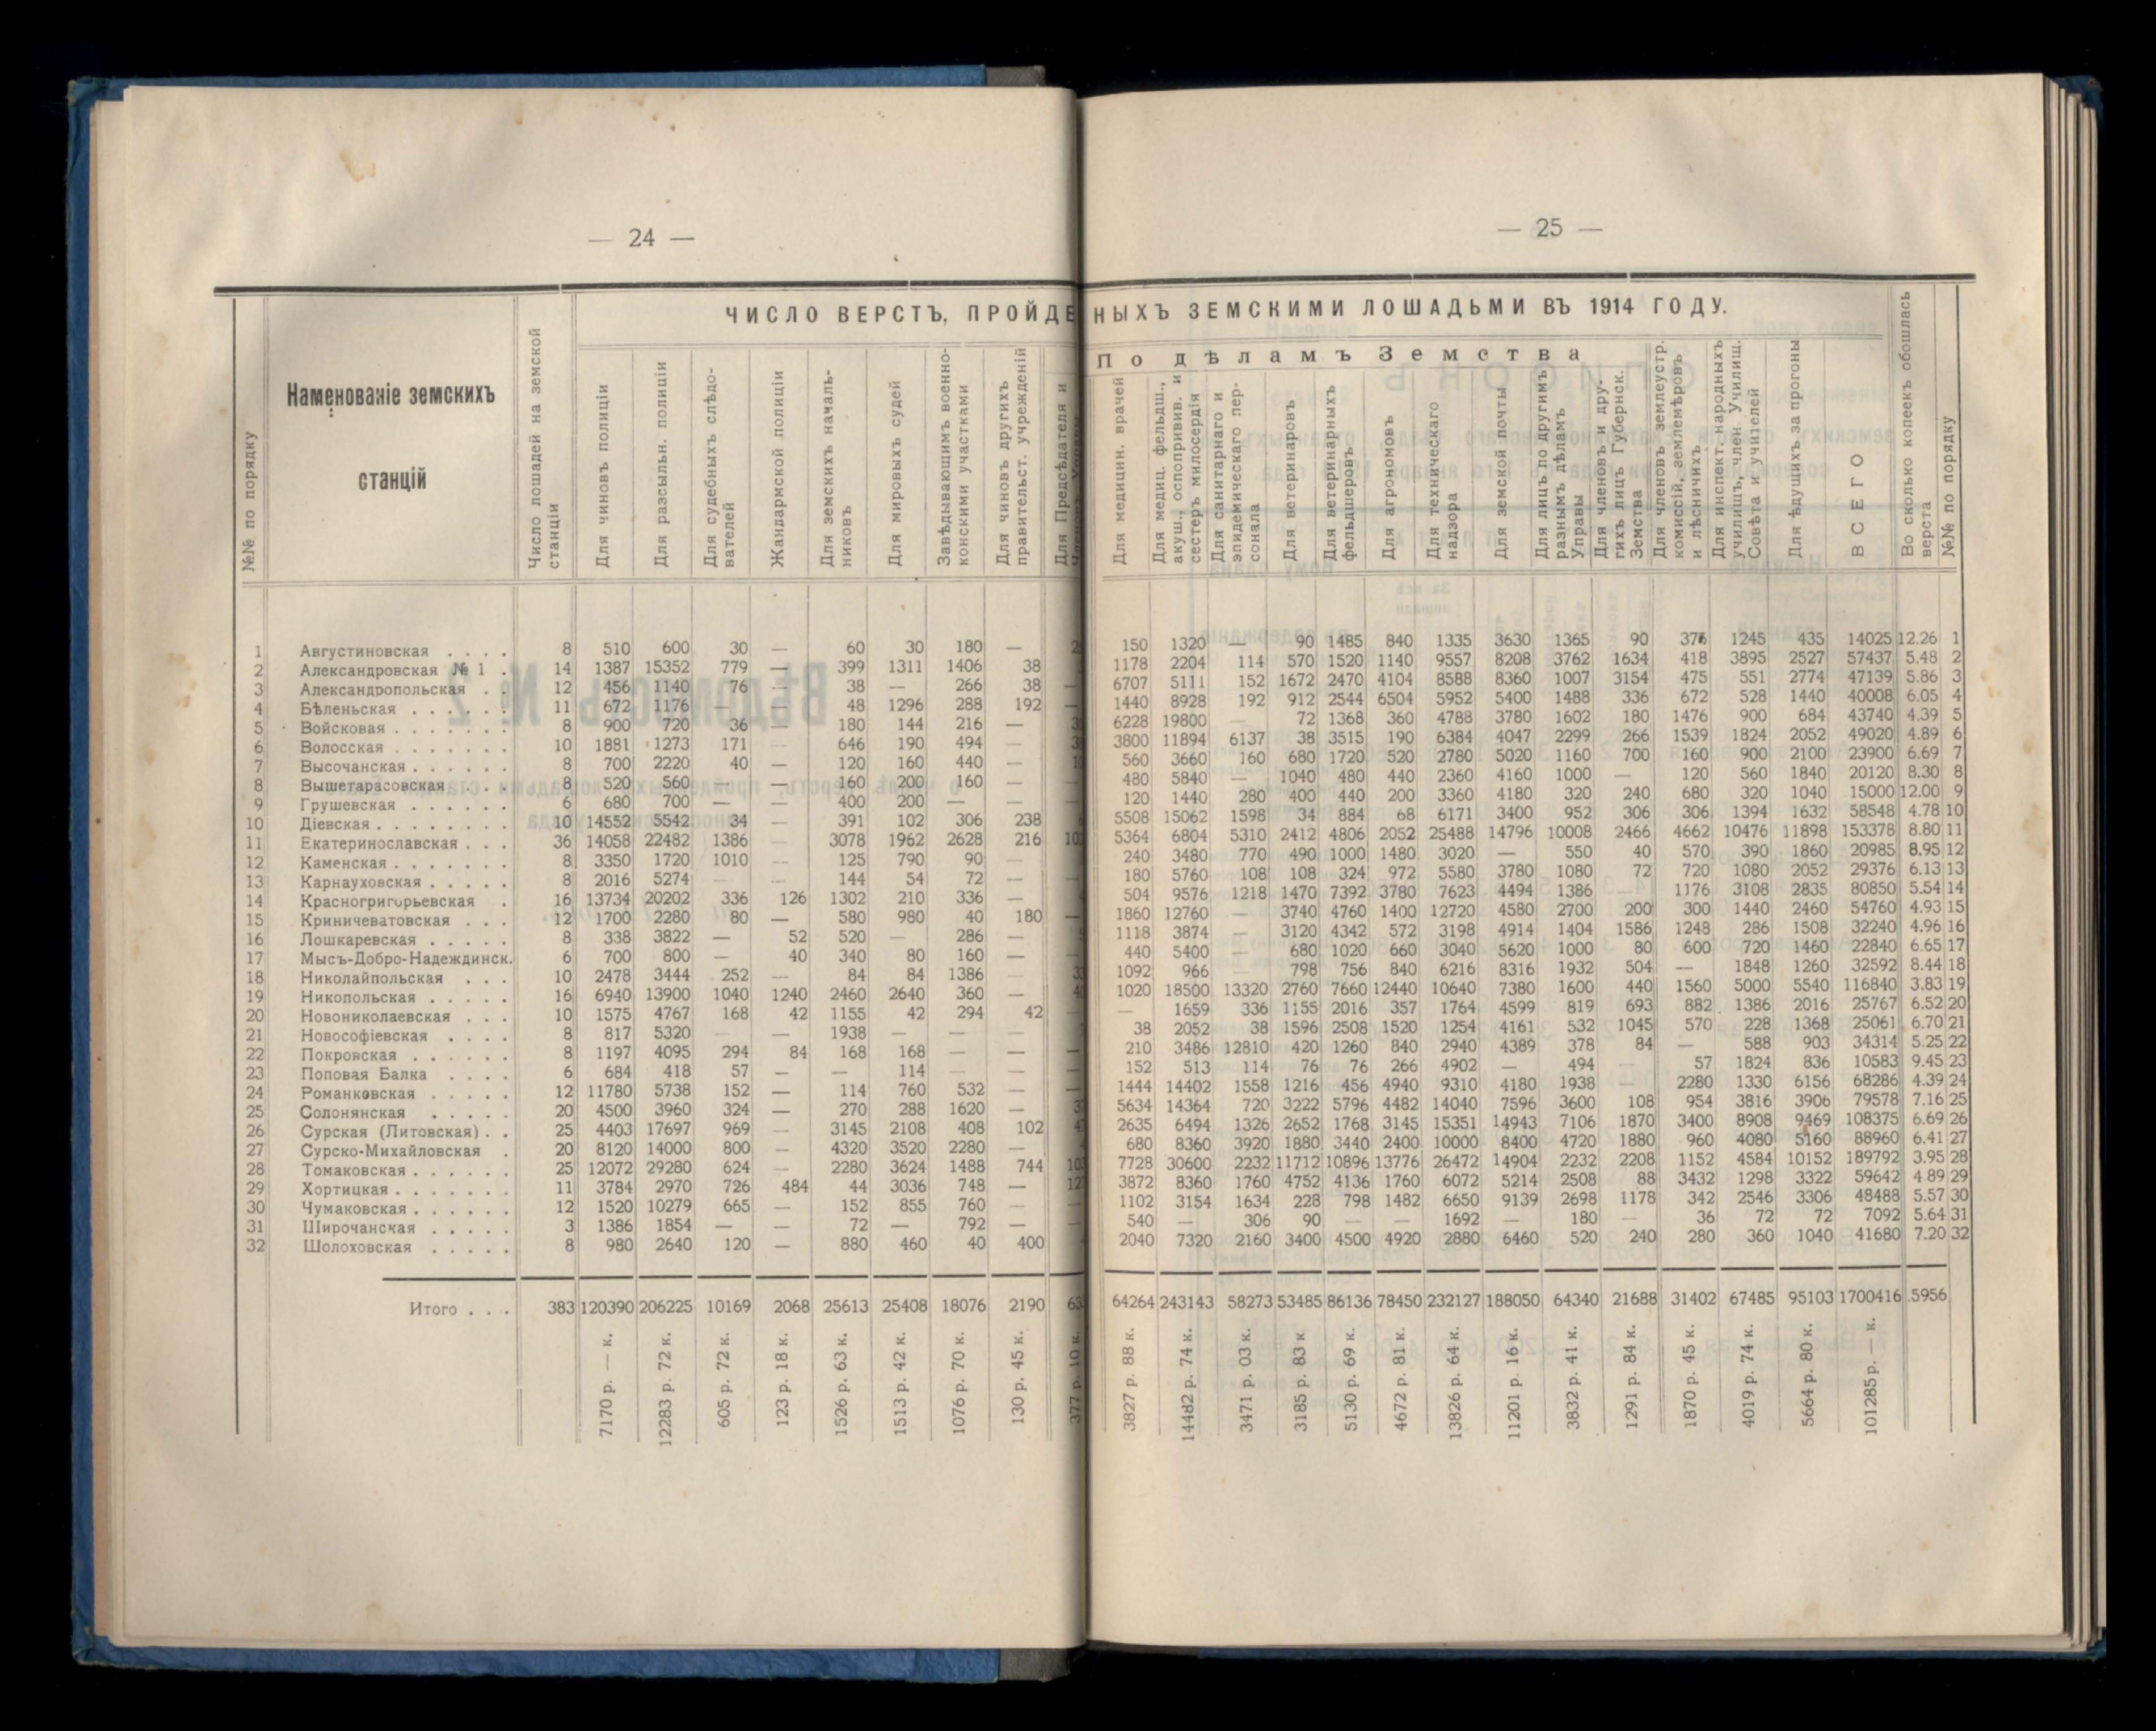 — 24 —
ЧИСЛО ВЕРСТЪ, ПРОЙДЕ
№№ по порядку
Наменованіе земскихъ
станцій
Число лошадей на земской
станціи
Для чиновъ полиціи
Для разсыльн. полиціи
Для судебныхъ слѣдо-
вателей
Жандармской полиціи
Для земскихъ началь-
никовъ
Для мировыхъ судей
Завѣдывающимъ военно-
конскими участками
Для чиновъ другихъ
правительст. учрежденій
Для Предсѣдателя и
1 Августиновская . . . . 8 510 600 30 — 60 30 180 —
2 Александровская № 1 . 14 1387 15352 779 — 399 1311 1406 38
3 Александропольская . . 12 456 1140 76 — 38 — 266 38 —
4 Бѣленьская . . . . . . 11 672 1176 — — 48 1296 288 192 —
5 Войсковая . . . . . . . 8 900 720 36 — 180 144 216 —
6 Волосская . . . . . . . 10 1881 1273 171 — 646 190 494 —
7 Высочанская . . . . . . 8 700 2220 40 — 120 160 440 —
8 Вышетарасовская . . . 8 520 560 — — 160 200 160 — —
9 Грушевская . . . . . . 6 680 700 — — 400 200 — — —
10 Діевская . . . . . . . . 10 14552 5542 34 — 391 102 306 238
11 Екатеринославская . . . 36 14058 22482 1386 — 3078 1962 2628 216
12 Каменская . . . . . . . 8 3350 1720 1010 — 125 790 90 —
13 Карнауховская . . . . . 8 2016 5274 — — 144 54 72 — —
14 Красногригорьевская . 16 13734 20202 336 126 1302 210 336 —
15 Криничеватовская . . . 12 1700 2280 80 — 580 980 40 180 —
16 Лошкаревская . . . . . 8 338 3822 — 52 520 — 286 —
17 Мысъ-Добро-Надеждинск. 6 700 800 — 40 340 80 160 — —
18 Николайпольская . . . 10 2478 3444 252 — 84 84 1386 —
19 Никопольская . . . . . 16 6940 13900 1040 1240 2460 2640 360 —
20 Новониколаевская . . . 10 1575 4767 168 42 1155 42 294 42 —
21 Новософіевская . . . . 8 817 5320 — — 1938 — — —
22 Покровская . . . . . . 8 1197 4095 294 84 168 168 — — —
23 Поповая Балка . . . . 6 684 418 57 — — 114 — — —
24 Романковская . . . . . 12 11780 5738 152 — 114 760 532 — —
25 Солонянская . . . . . 20 4500 3960 324 — 270 288 1620 —
26 Сурская (Литовская) . . 25 4403 17697 969 — 3145 2108 408 102
27 Сурско-Михайловская . 20 8120 14000 800 — 4320 3520 2280 —
28 Томаковская . . . . . . 25 12072 29280 624 — 2280 3624 1488 744
29 Хортицкая . . . . . . . 11 3784 2970 726 484 44 3036 748 —
30 Чумаковская . . . . . . 12 1520 10279 665 — 152 855 760 — —
31 Широчанская . . . . . 3 1386 1854 — — 72 — 792 — —
32 Шолоховская . . . . . 8 980 2640 120 — 880 460 40 400
Итого . . . 383 120390 206225 10169 2068 25613 25408 18076 2190
7170 р. — к.
12283 р. 72 к.
605 р. 72 к.
123 р. 18 к.
1526 р. 63 к.
1513 р. 42 к.
1076 р. 70 к.
130 р. 45 к.
377 р. 10 к.
— 25 —
НЫХЪ ЗЕМСКИМИ ЛОШАДЬМИ ВЪ 1914 ГОДУ.
По дѣламъ Земства
Для медицин. врачей
Для медиц. фельдш.,
акуш., оспопривив. и
сестеръ милосердія
Для санитарнаго и
эпидемическаго пер-
сонала
Для ветеринаровъ
Для ветеринарныхъ
фельдшеровъ
Для агрономовъ
Для техническаго
надзора
Для земской почты
Для лицъ по другимъ
разнымъ дѣламъ
Управы
Для членовъ и дру-
гихъ лицъ Губернск.
Земства
Для членовъ землеустр.
комиссій, землемѣровъ
и лѣсничихъ
Для инспект. народныхъ
училищъ, член. Училищ.
Совѣта и учителей
Для ѣдущихъ за прогоны
ВСЕГО
Во сколько копеекъ обошлась
верста
№№ по порядку
150 1320 — 90 1485 840 1335 3630 1365 90 376 1245 435 14025 12.26 1
1178 2204 114 570 1520 1140 9557 8208 3762 1634 418 3895 2527 57437 5.48 2
6707 5111 152 1672 2470 4104 8588 8360 1007 3154 475 551 2774 47139 5.86 3
1440 8928 192 912 2544 6504 5952 5400 1488 336 672 528 1440 40008 6.05 4
6228 19800 — 72 1368 360 4788 3780 1602 180 1476 900 684 43740 4.39 5
3800 11894 6137 38 3515 190 6384 4047 2299 266 1539 1824 2052 49020 4.89 6
560 3660 160 680 1720 520 2780 5020 1160 700 160 900 2100 23900 6.69 7
480 5840 — 1040 480 440 2360 4160 1000 — 120 560 1840 20120 8.30 8
120 1440 280 400 440 200 3360 4180 320 240 680 320 1040 15000 12.00 9
5508 15062 1598 34 884 68 6171 3400 952 306 306 1394 1632 58548 4.78 10
5364 6804 5310 2412 4806 2052 25488 14796 10008 2466 4662 10476 11898 153378 8.80 11
240 3480 770 490 1000 1480 3020 — 550 40 570 390 1860 20985 8.95 12
180 5760 108 108 324 972 5580 3780 1080 72 720 1080 2052 29376 6.13 13
504 9576 1218 1470 7392 3780 7623 4494 1386 — 1176 3108 2835 80850 5.54 14
1860 12760 — 3740 4760 1400 12720 4580 2700 200 300 1440 2460 54760 4.93 15
1118 3874 — 3120 4342 572 3198 4914 1404 1586 1248 286 1508 32240 4.96 16
440 5400 — 680 1020 660 3040 5620 1000 80 600 720 1460 22840 6.65 17
1092 966 — 798 756 840 6216 8316 1932 504 — 1848 1260 32592 8.44 18
1020 18500 13320 2760 7660 12440 10640 7380 1600 440 1560 5000 5540 116840 3.83 19
— 1659 336 1155 2016 357 1764 4599 819 693 882 1386 2016 25767 6.52 20
38 2052 38 1596 2508 1520 1254 4161 532 1045 570 228 1368 25061 6.70 21
210 3486 12810 420 1260 840 2940 4389 378 84 — 588 903 34314 5.25 22
152 513 114 76 76 266 4902 — 494 — 57 1824 836 10583 9.45 23
1444 14402 1558 1216 456 4940 9310 4180 1938 — 2280 1330 6156 68286 4.39 24
5634 14364 720 3222 5796 4482 14040 7596 3600 108 954 3816 3906 79578 7.16 25
2635 6494 1326 2652 1768 3145 15351 14943 7106 1870 3400 8908 9469 108375 6.69 26
680 8360 3920 1880 3440 2400 10000 8400 4720 1880 960 4080 5160 88960 6.41 27
7728 30600 2232 11712 10896 13776 26472 14904 2232 2208 1152 4584 10152 189792 3.95 28
3872 8360 1760 4752 4136 1760 6072 5214 2508 88 3432 1298 3322 59642 4.89 29
1102 3154 1634 228 798 1482 6650 9139 2698 1178 342 2546 3306 48488 5.57 30
540 — 306 90 — — 1692 — 180 — 36 72 72 7092 5.64 31
2040 7320 2160 3400 4500 4920 2880 6460 520 240 280 360 1040 41680 7.20 32
64264 243143 58273 53485 86136 78450 232127 188050 64340 21688 31402 67485 95103 1700416 .5956
3827 р. 88 к.
14482 р. 74 к.
3471 р. 03 к.
3185 р. 83 к
5130 р. 69 к.
4672 р. 81 к.
13826 р. 64 к.
11201 р. 16 к.
3832 р. 41 к.
1291 р. 84 к.
1870 р. 45 к.
4019 р. 74 к.
5664 р. 80 к.
101285 р. — к.